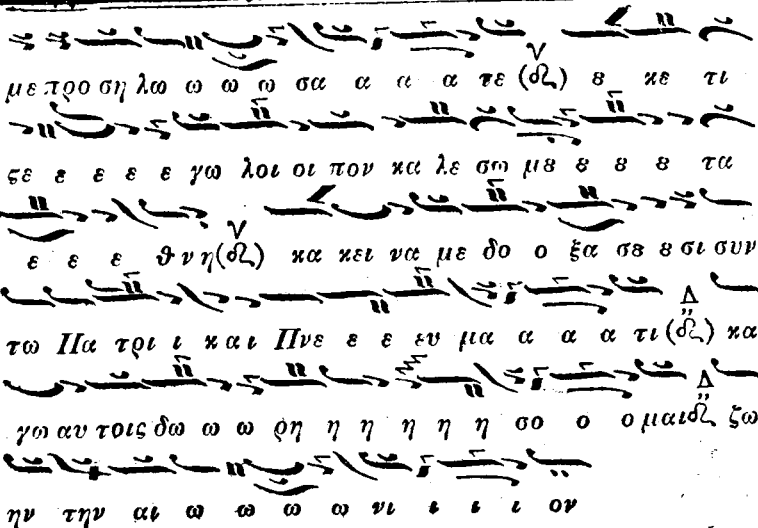 με προ ση λω ω ω ω σα α α α τε ȣ κε τι
ςε ε ε ε ε γω λοι οι πον κα λε σω μȣ ȣ ȣ ȣ τα
ε ε ε θνη κα κει να με δο ο ξα σȣ ȣ σι συν
τω Πα τρι ι και Πνε ε ε ευ μα α α α τι κα
γω αυ τοις δω ω ω ρη η η η η η σο ο ο μαι ζω
ην την αι ω ω ω ω νι ι ι ι ον